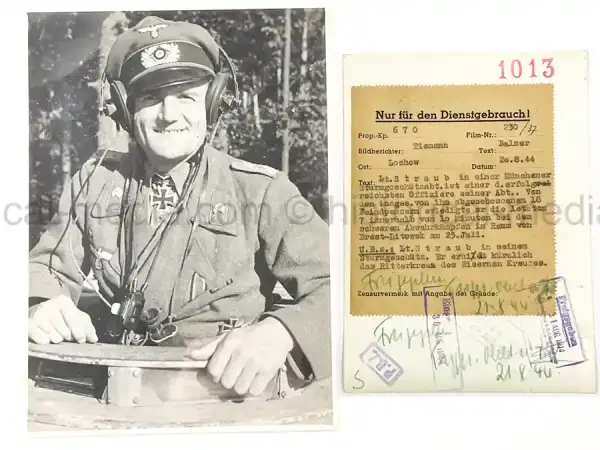 1013
Nur für den Dienstgebrauch!
Prop.-Kp. 670 Film-Nr.: 230/37
Bildberichter: Tiemann Text: Balzer
Ort: Lochow Datum: 20.8.44
Text: Lt. Straub in einer Münchener
Sturmgeschützabt. ist einer d. erfolg-
reichsten Offiziere seiner Abt.. Von
den insges. von ihm abgeschossenen 18
Feindpanzern erledigte er die letzten
7 innerhalb von 10 Minuten bei den
schweren Abwehrkämpfen im Raum von
Brest-Litowsk am 25. Juli.
U.Bz.: Lt. Straub in seinem
Sturmgeschütz. Er erhielt kürzlich
das Ritterkreuz des Eisernen Kreuzes.
Zensurvermerk mit Angabe der Gründe:
21.8.44
P.B.Z.
31. AUG. 1944
21.8.44
S